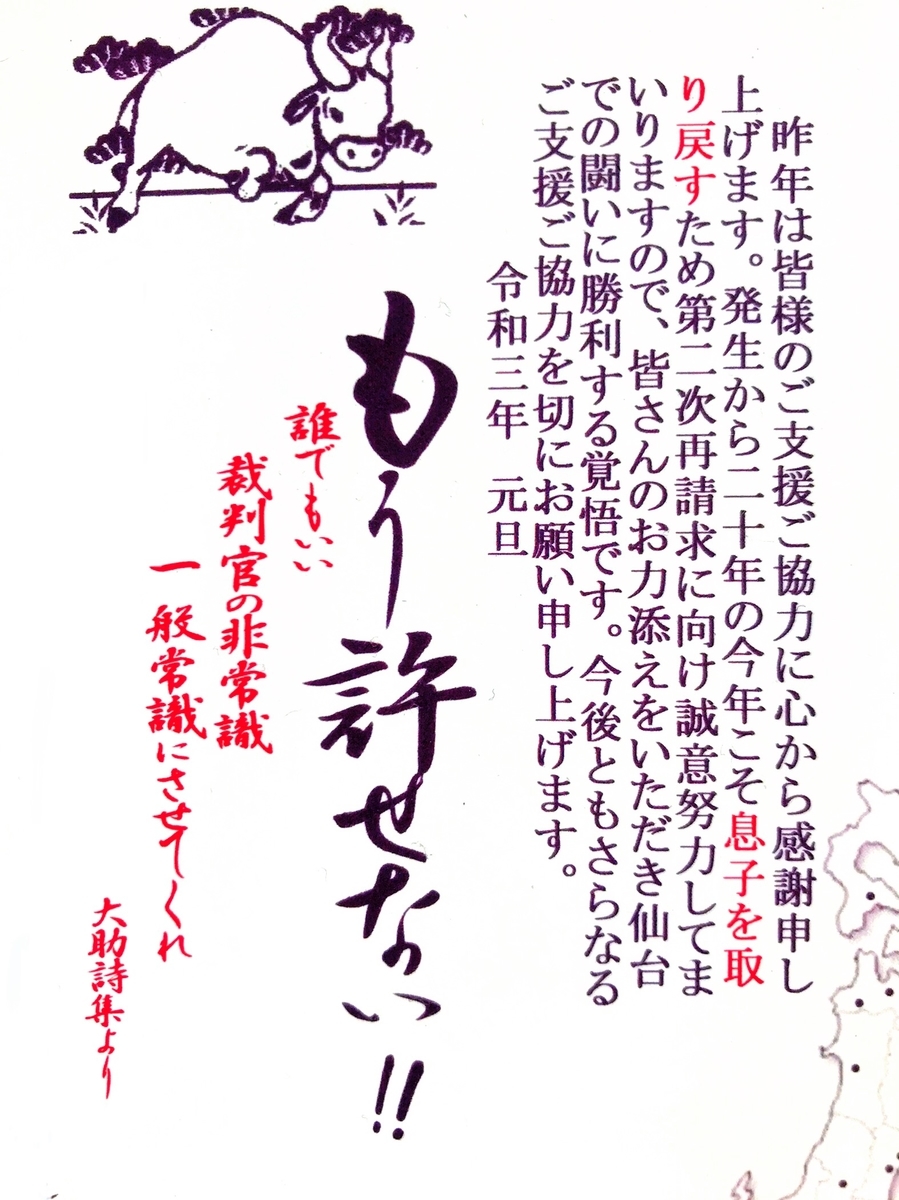 昨年は皆様のご支援ご協力に心から感謝申し
上げます。発生から二十年の今年こそ息子を取
り戻すため第二次再請求に向け誠意努力してま
いりますので、皆さんのお力添えをいただき仙台
での闘いに勝利する覚悟です。今後ともさらなる
ご支援ご協力を切にお願い申し上げます。
令和三年 元旦
もう許せない!!
誰でもいい
裁判官の非常識
一般常識にさせてくれ
大助詩集より